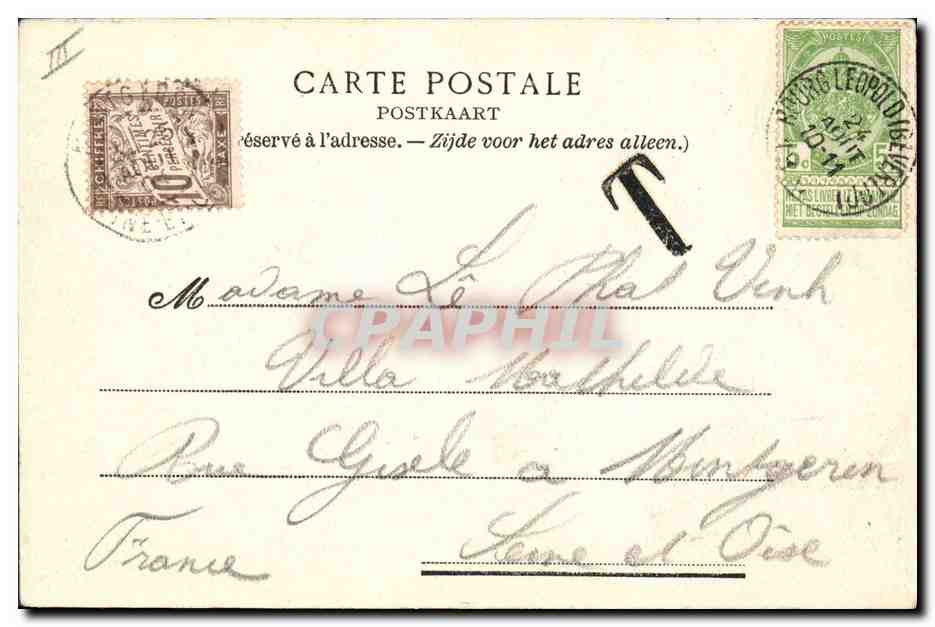 III
CARTE POSTALE
POSTKAART
réservé à l'adresse. — Zijde voor het adres alleen.)
10
T
5
BOURG LEOPOLD (BEVERLOO)
24
AOUT
10-11
Madame Lê Phat Vinh
CPAPHIL
Villa Mathilde
Rue Gisèle à Montgeron
France
Seine et Oise